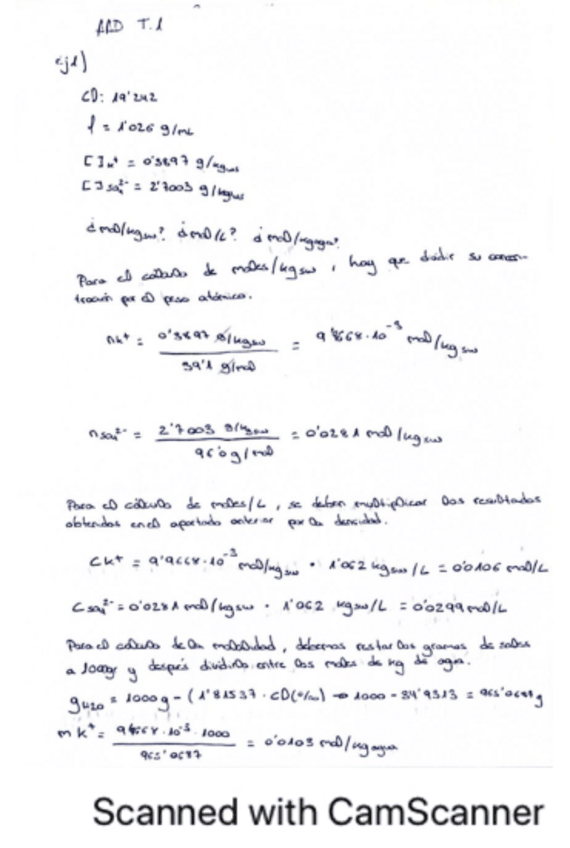 AAD T.1
ej1)
CD: 19'242
f = 1'026 g/mL
[ ]K⁺ = 0'3897 g/kgsw
[ ]SO₄²⁻ = 2'7003 g/kgsw
¿mol/kgsw? ¿mol/L? ¿mol/kgagua?
Para el cálculo de moles/kgsw, hay que dividir su concen-
tración por el peso atómico.
nK⁺ = 0'3897 g/kgsw / 39'1 g/mol = 9'9668·10⁻³ mol/kgsw
nSO₄²⁻ = 2'7003 g/kgsw / 96'0 g/mol = 0'0281 mol/kgsw
Para el cálculo de moles/L, se deben multiplicar los resultados
obtenidos en el apartado anterior por la densidad.
CK⁺ = 9'9668·10⁻³ mol/kgsw · 1'062 kgsw/L = 0'0106 mol/L
CSO₄²⁻ = 0'0281 mol/kgsw · 1'062 kgsw/L = 0'0299 mol/L
Para el cálculo de la molalidad, debemos restar los gramos de sales
a 1000g y después dividirlo entre los moles de kg de agua.
gH₂O = 1000g - (1'81537 · CD(‰)) → 1000 - 34'9313 = 965'0687g
mK⁺ = 9'9668·10⁻³·1000 / 965'0687 = 0'0103 mol/kgagua
Scanned with CamScanner